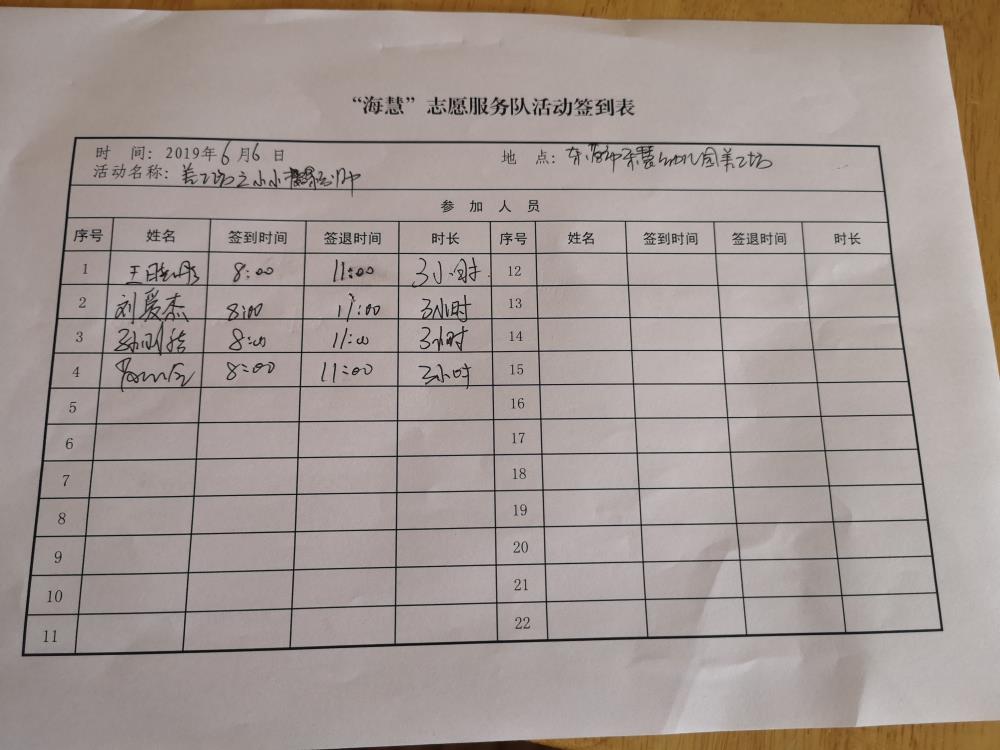 “海慧”志愿服务队活动签到表
时 间：2019年6月6日 地 点：东 市 慧幼儿园美工坊
活动名称：美工坊之小小 师
参 加 人 员
序号 姓名 签到时间 签退时间 时长 序号 姓名 签到时间 签退时间 时长
1 王晓彤 8:00 11:00 3小时 12
2 刘爱杰 8:00 11:00 3小时 13
3 孙 8:00 11:00 3小时 14
4 8:00 11:00 3小时 15
5 16
6 17
7 18
8 19
9 20
10 21
11 22